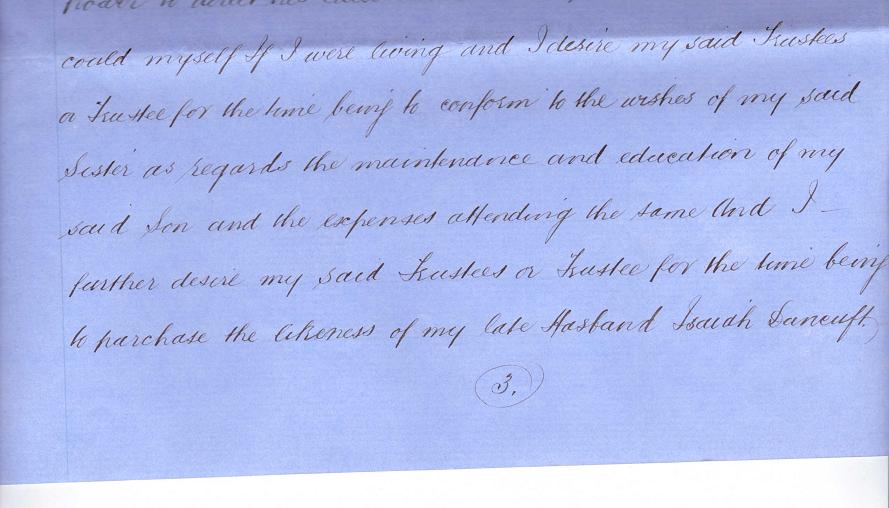 power to
could myself If I were living and I desire my said Trustees
or Trustee for the time being to conform to the wishes of my said
Sister as regards the maintenance and education of my
said Son and the expenses attending the same And I
further desire my said Trustees or Trustee for the time being
to purchase the likeness of my late Husband Isaiah Dancuft
3.